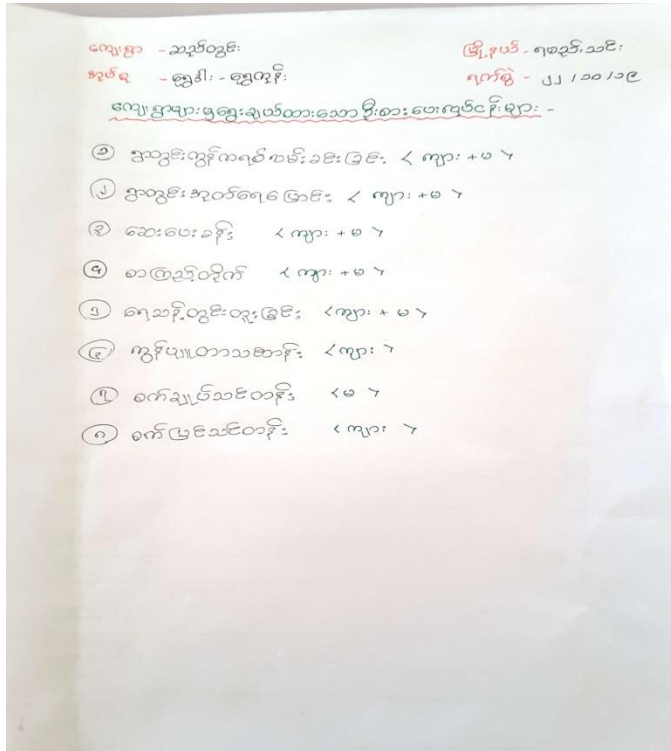 ကျေးရွာ - ဆည်တွင်း မြို့နယ် - ရမည်းသင်း
အုပ်စု - ရွှေဒါး - ရွှေကုန်း ရက်စွဲ - ၂၂ / ၁၀ / ၁၉
ကျေးရွာများမှရွေးချယ်ထားသောဦးစားပေးလုပ်ငန်းများ -
၁ ရွာတွင်းကွန်ကရစ်လမ်းခင်းခြင်း < ကျား + မ >
၂ ရွာတွင်းအုတ်ရေမြောင်း < ကျား + မ >
၃ ဆေးပေးခန်း < ကျား + မ >
၄ စာကြည့်တိုက် < ကျား + မ >
၅ ရေသန့်တွင်းတူးခြင်း < ကျား + မ >
၆ ကွန်ပျူတာသင်တန်း < ကျား >
၇ စက်ချုပ်သင်တန်း < မ >
၈ စက်ပြင်သင်တန်း < ကျား >